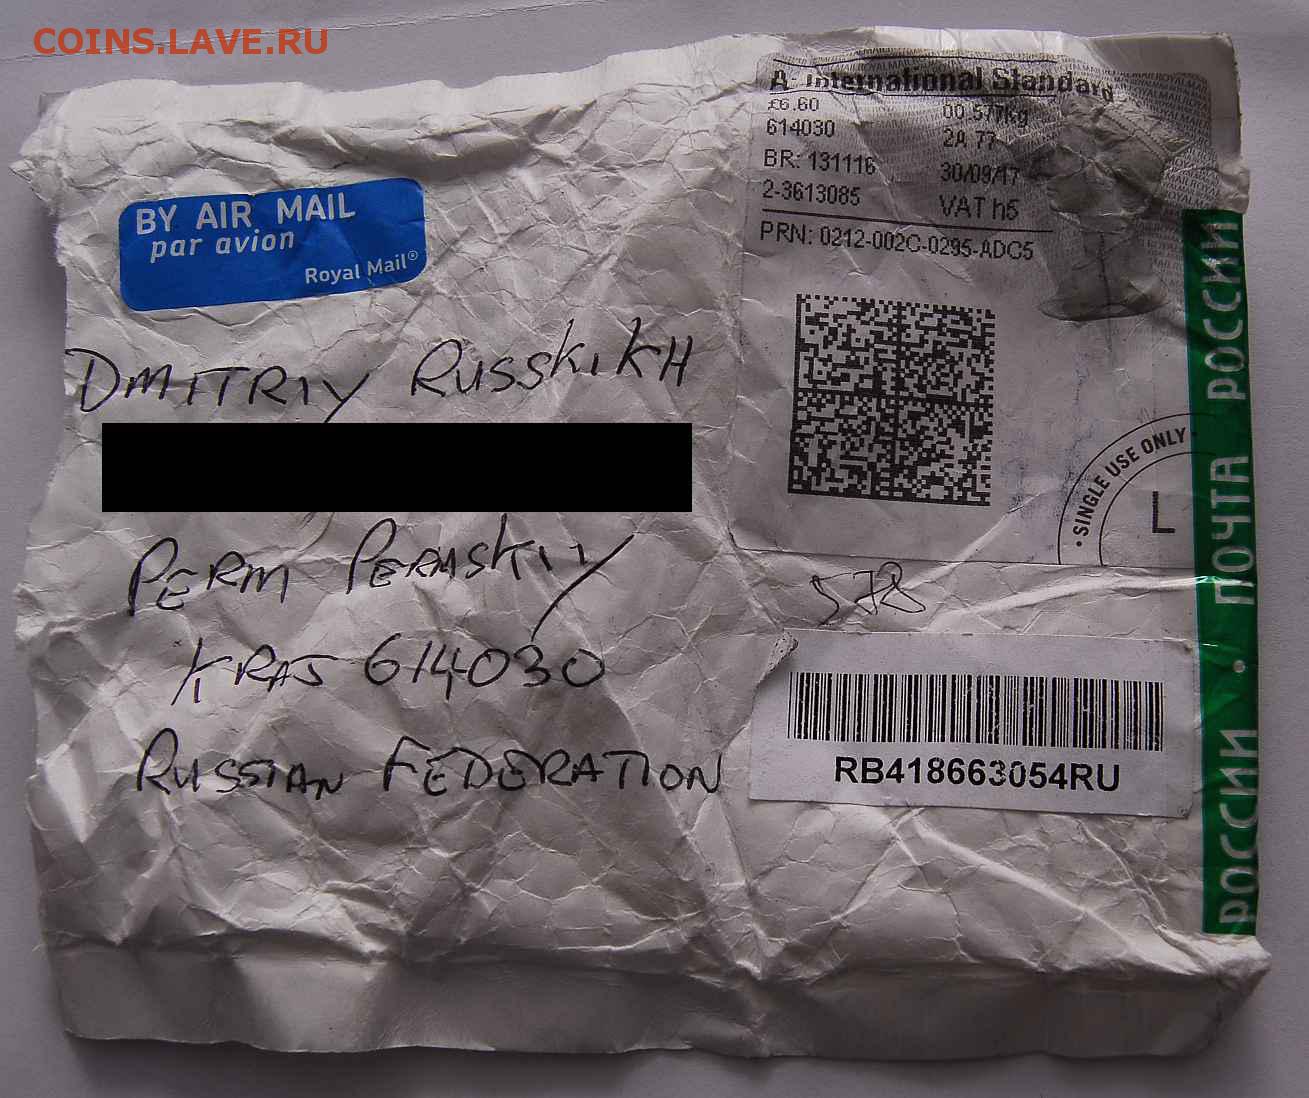 COINS.LAVE.RU
BY AIR MAIL
par avion
Royal Mail®
A- International Standard
£6.60 00.577kg
614030 2A 77
BR: 131116 30/09/17
2-3613085 VAT h5
PRN: 0212-002C-0295-ADC5
· SINGLE USE ONLY ·
L
DMITRIY RUSSKIKH
PERM PERMSKIY
KRAJ 614030
RUSSIAN FEDERATION
578
RB418663054RU
РОССИИ · ПОЧТА РОССИИ